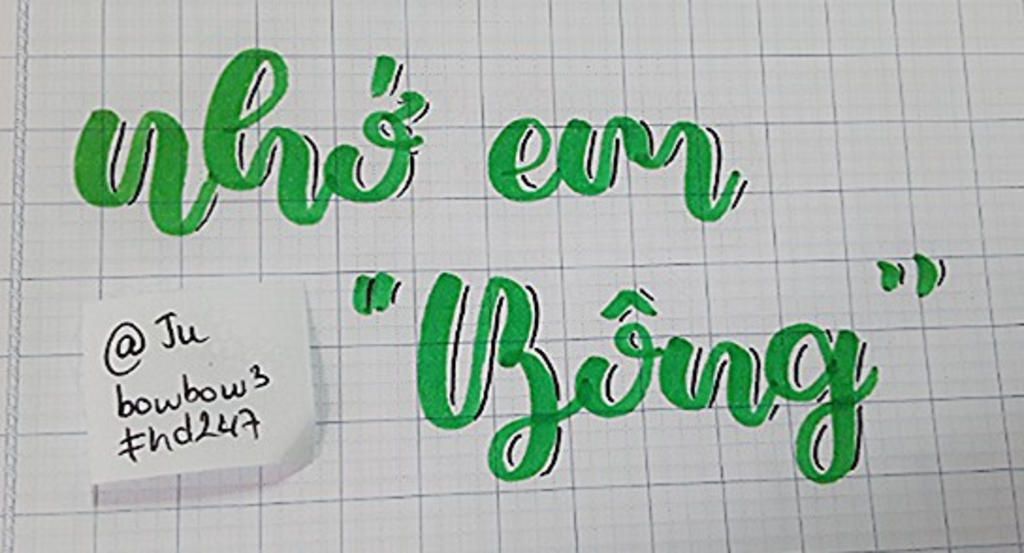 nhớ em
"Bông"
@ Ju
bowbow3
#hd247